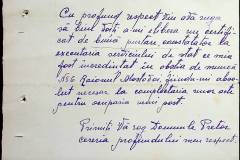 Cu profund respect Vin a vă ruga
să bine voiți a-mi elibera un certifi
cat de bună purtare constatator la
executarea serviciului de stat ce mi-a
fost încredințat în obștia de muncă
No Raionul , fiindu-mi abso-
lut necesar la completarea unor acte
pentru ocuparea unui post.
Primiți Vă rog Domnule Pretor
cererea profundului meu respect.